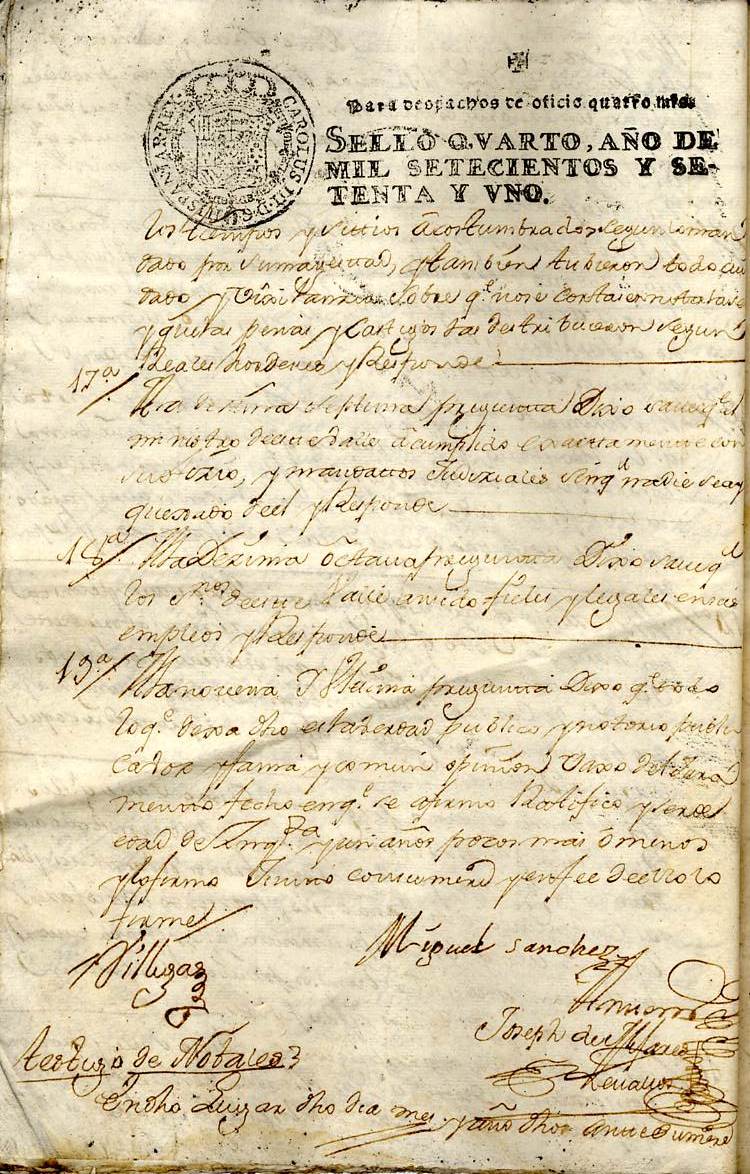 CAROLUS III D. G. HISPANIAR. REX.
Para despachos de oficio quatro mrs.
SELLO QVARTO, AÑO DE
MIL SETECIENTOS Y SE-
TENTA Y VNO.
los tiempos y sittios acostumbrados segun loman
dado por su magesttad, y tambien tubieron todo cui
dado y vixilancia sobre q.e no se
y penas y Castigos las destribuieron segun
Reales hordenes y Responde
17ª/ A la dezima septtima preguntta Dixo save q.e el
ministro de este valle a cumplido exactamente con
su , y mandattos Judiziales sin q.e nadie se aya
quexado de el y Responde
18ª/ A la Dezima octtava preguntta Dixo save q.e
los de este Valle an sido fieles y legales en sus
empleos y Responde
19ª/ A la novena y Ulttima preguntta Dixo q.e todo
lo q.e dexa dho es la verdad publico y nottorio publi
ca voz y fama y comun opinion vaxo del Jura
mentto fecho en q.e se afirmo Rattifico y ser de
edad de zinq.ta y un años pocos mas ô menos
y lo firmo Juntto con su merd y en fee de ello lo
firme/
Villegas
Miguel Sanchez
Antte mi
Joseph de
Zevallos
testigo de Nobales
En dho Lugar dho dia mes y año dhos antte su merd